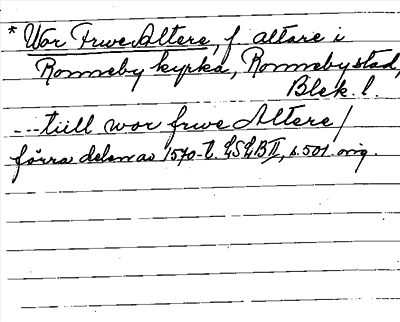 * Wor Frwe Altere, f altare i
Ronneby kyrka, Ronneby stad,
Blek. l.
---tiill wor frwe Altere/
förra delen av 1570-t. LSLB II, s. 501. orig.